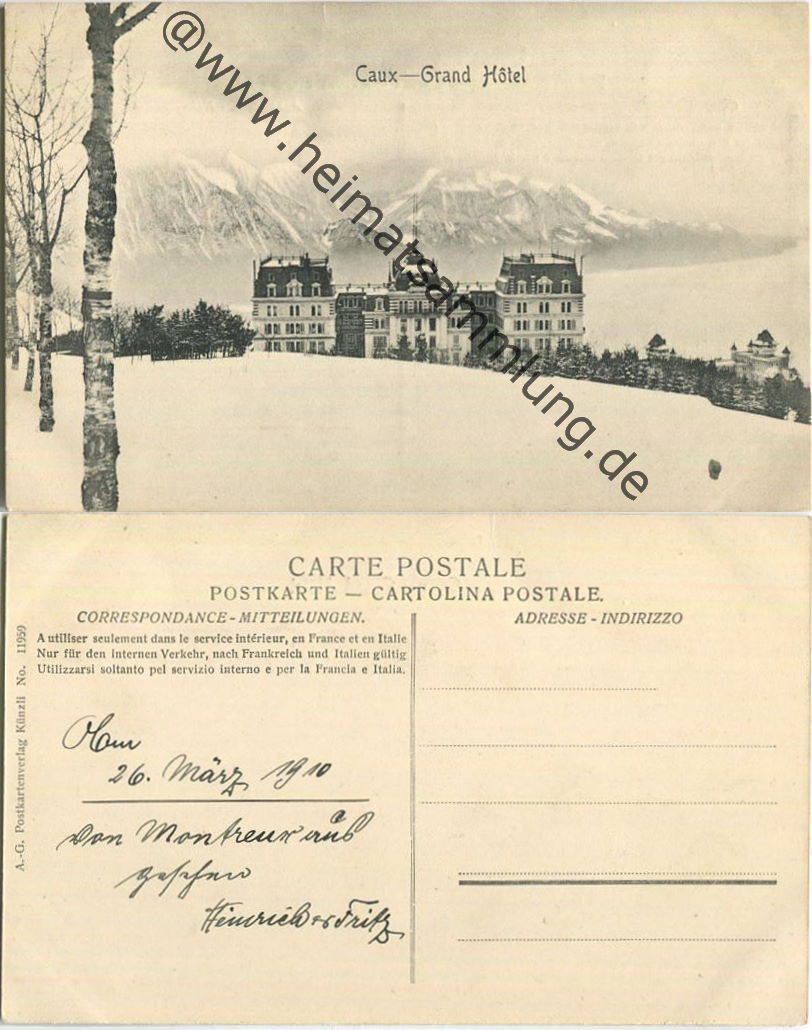 Caux—Grand Hôtel
@www.heimatsammlung.de
CARTE POSTALE
POSTKARTE — CARTOLINA POSTALE.
CORRESPONDANCE - MITTEILUNGEN.
ADRESSE - INDIRIZZO
A utiliser seulement dans le service intérieur, en France et en Italie
Nur für den internen Verkehr, nach Frankreich und Italien gültig
Utilizzarsi soltanto pel servizio interno e per la Francia e Italia.
A.-G. Postkartenverlag Künzli No. 11959
Am
26. März 1910
von Montreux aus
gesehen
Heinrich & Fritz